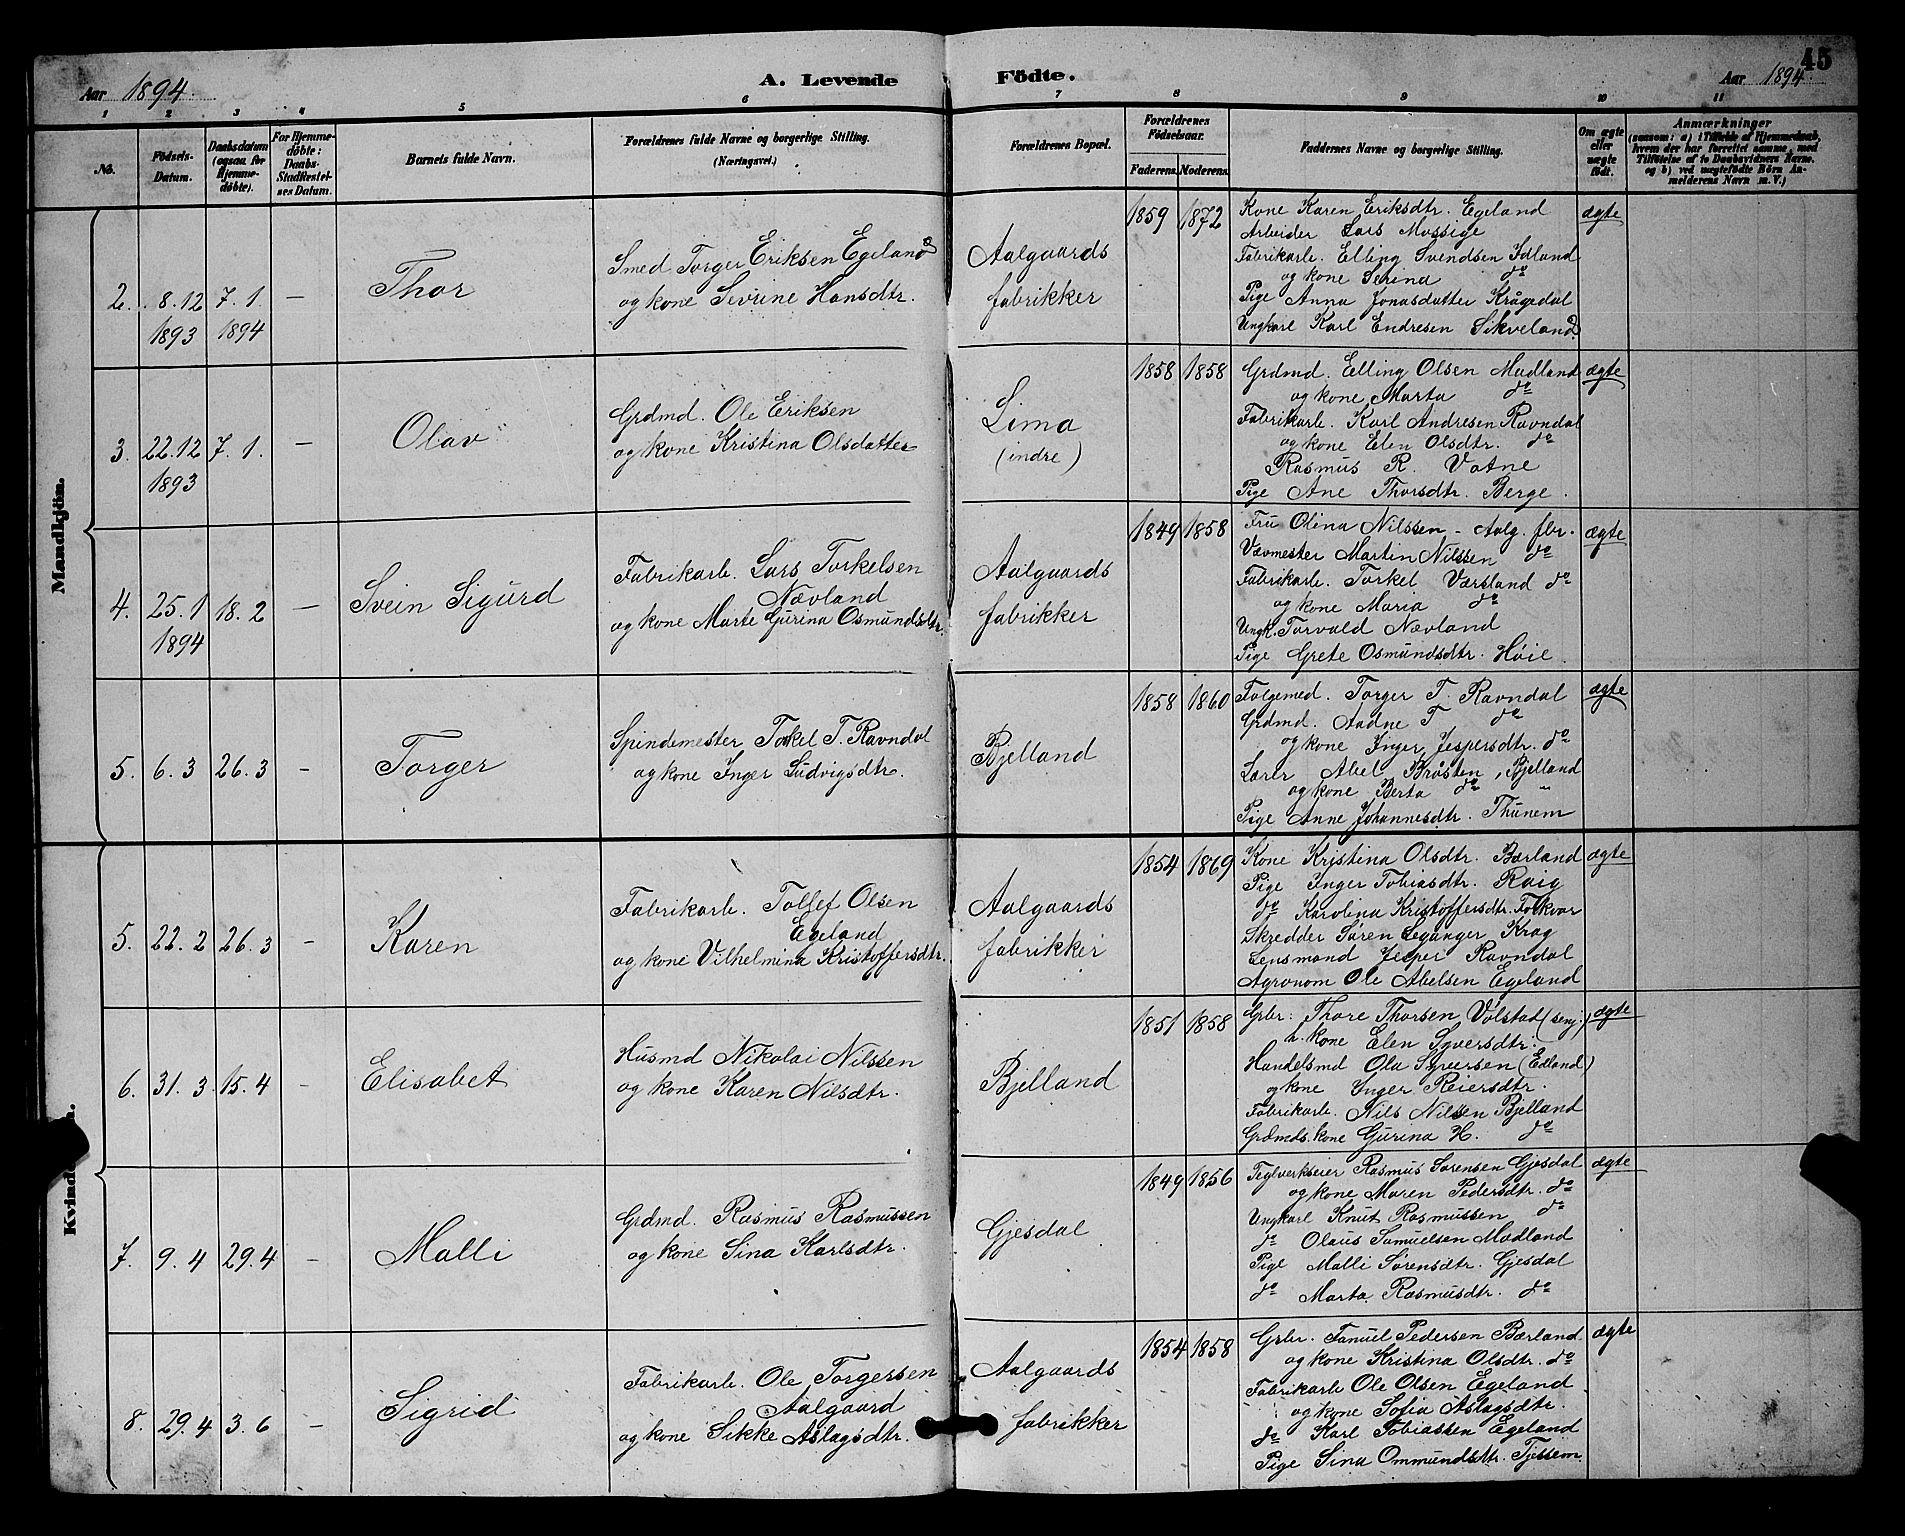 45
Aar 1894.
A. Levende Födte.
Aar 1894.
1 2 3 4 5 6 7 8 9 10 11
No.
Födsels-
Datum.
Daabsdatum
(ogsaa for
Hjemme-
döbte).
For Hjemme-
döbte:
Daabs-
Stadfæstel-
ses Datum.
Barnets fulde Navn.
Forældrenes fulde Navne og borgerlige Stilling.
(Næringsvei.)
Forældrenes Bopæl.
Forældrenes
Födselsaar.
Faderens. Moderens.
Faddernes Navne og borgerlige Stilling.
Om ægte
eller
uægte
födt.
Anmærkninger
(saasom: a) i Tilfælde af Hjemmedaab,
hvem der har forrettet samme, med
Tilföielse af to Daabsvidners Navne.
og b) ved uægtefödte Börn An-
melderens Navn m. V.)
Mandkjön.
2. 8.12 7.1. —
1893 1894
Thor
Smed Torger Eriksen Egeland
og kone Sevrine Hansdtr.
Aalgaards
fabrikker
1859 1872
Kone Karen Eriksdtr. Egeland
Arbeider Lars Mossige
Fabrikarb. Elling Svendsen Idland
og kone Serina do
Pige Anna Jonasdatter Krågedal
Ungkarl Karl Endresen Sikveland
ægte
3. 22.12 7.1. —
1893
Olav
Grdmd. Ole Eriksen
og kone Kristina Olsdatter
Lima
(indre)
1858 1858
Grdmd. Elling Olsen Madland
og kone Marta do
Fabrikarb. Karl Andresen Ravndal
og kone Elen Olsdtr. do
Rasmus R. Vatne
Pige Ane Thorsdtr. Berge.
ægte
4. 25.1 18.2 —
1894
Svein Sigurd
Fabrikarb. Lars Torkelsen
Nævland
og kone Marte Gurina Osmundsdtr.
Aalgaards
fabrikker
1849 1858
Fru Olina Nilssen - Aalg. fbr.
Vævmester Martin Nilssen do
Fabrikarb. Torkel Varsland do
og kone Maria do
Ungk. Torvald Nævland
Pige Grete Osmundsdtr. Høie
ægte
5. 6.3 26.3 -
Torger
Spindemester Torkel T. Ravndal
og kone Inger Ludvigsdtr.
Bjelland
1858 1860
Folgemd. Torger T. Ravndal
Grdmd. Aadne T do
og kone Inger Jespersdtr. do
Lærer Abel Bråsten, Bjelland
og kone Berta do "
Pige Anne Johannesdtr. Thunem
ægte
5. 22.2 26.3 -
Karen
Fabrikarb. Tollef Olsen
Egeland
og kone Vilhelmina Kristoffersdtr.
Aalgaards
fabrikker
1854 1869
Kone Kristina Olsdtr. Bærland
Pige Inger Tobiasdtr. Raig
do Karolina Kristoffersdtr. Folkvor
Skredder Søren Leganger Krag
Lensmand Jesper Ravndal
Agronom Ole Abelsen Egeland
ægte
6. 31.3 15.4 -
Elisabet
Husmd Nikolai Nilssen
og kone Karen Nilsdtr.
Bjelland
1851 1858
Grbr. Thore Thorsen Vølstad (senj.)
h. kone Elen Syversdtr.
Handelsmd Ola Syversen (Edland)
og kone Inger Reiersdtr.
Fabrikarb. Nils Nilsen Bjelland
Grdmds. kone Gurina H. do
ægte
7. 9.4 29.4 -
Malli
Grdmd. Rasmus Rasmussen
og kone Sina Karlsdtr.
Gjesdal
1849 1856
Teglverkseier Rasmus Sørensen Gjesdal
og kone Maren Pedersdtr. do
Ungkarl Knut Rasmussen do
do Olaus Samuelsen Madland
Pige Malli Sørensdtr. Gjesdal
do Marta Rasmusdtr. do
ægte
8. 29.4 3.6 -
Sigrid
Fabrikarb. Ole Torgersen
Aalgaard
og kone Sikke Aslagsdtr.
Aalgaards
fabrikker
1854 1858
Grbr. Fanuel Pedersen Bærland
og kone Kristina Olsdtr. do
Fabrikarb Ole Olsen Egeland
og kone Sofia Aslagsdtr.
do Karl Tobiassen Egeland
Pige Sina Ommundsdtr. Tjessem
ægte